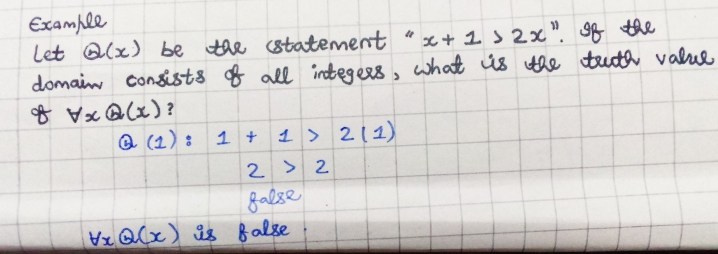 Example
Let Q(x) be the statement "x + 1 > 2x". If the
domain consists of all integers, what is the truth value
of ∀x Q(x)?
Q (1) : 1 + 1 > 2(1)
2 > 2
false
∀x Q(x) is false.